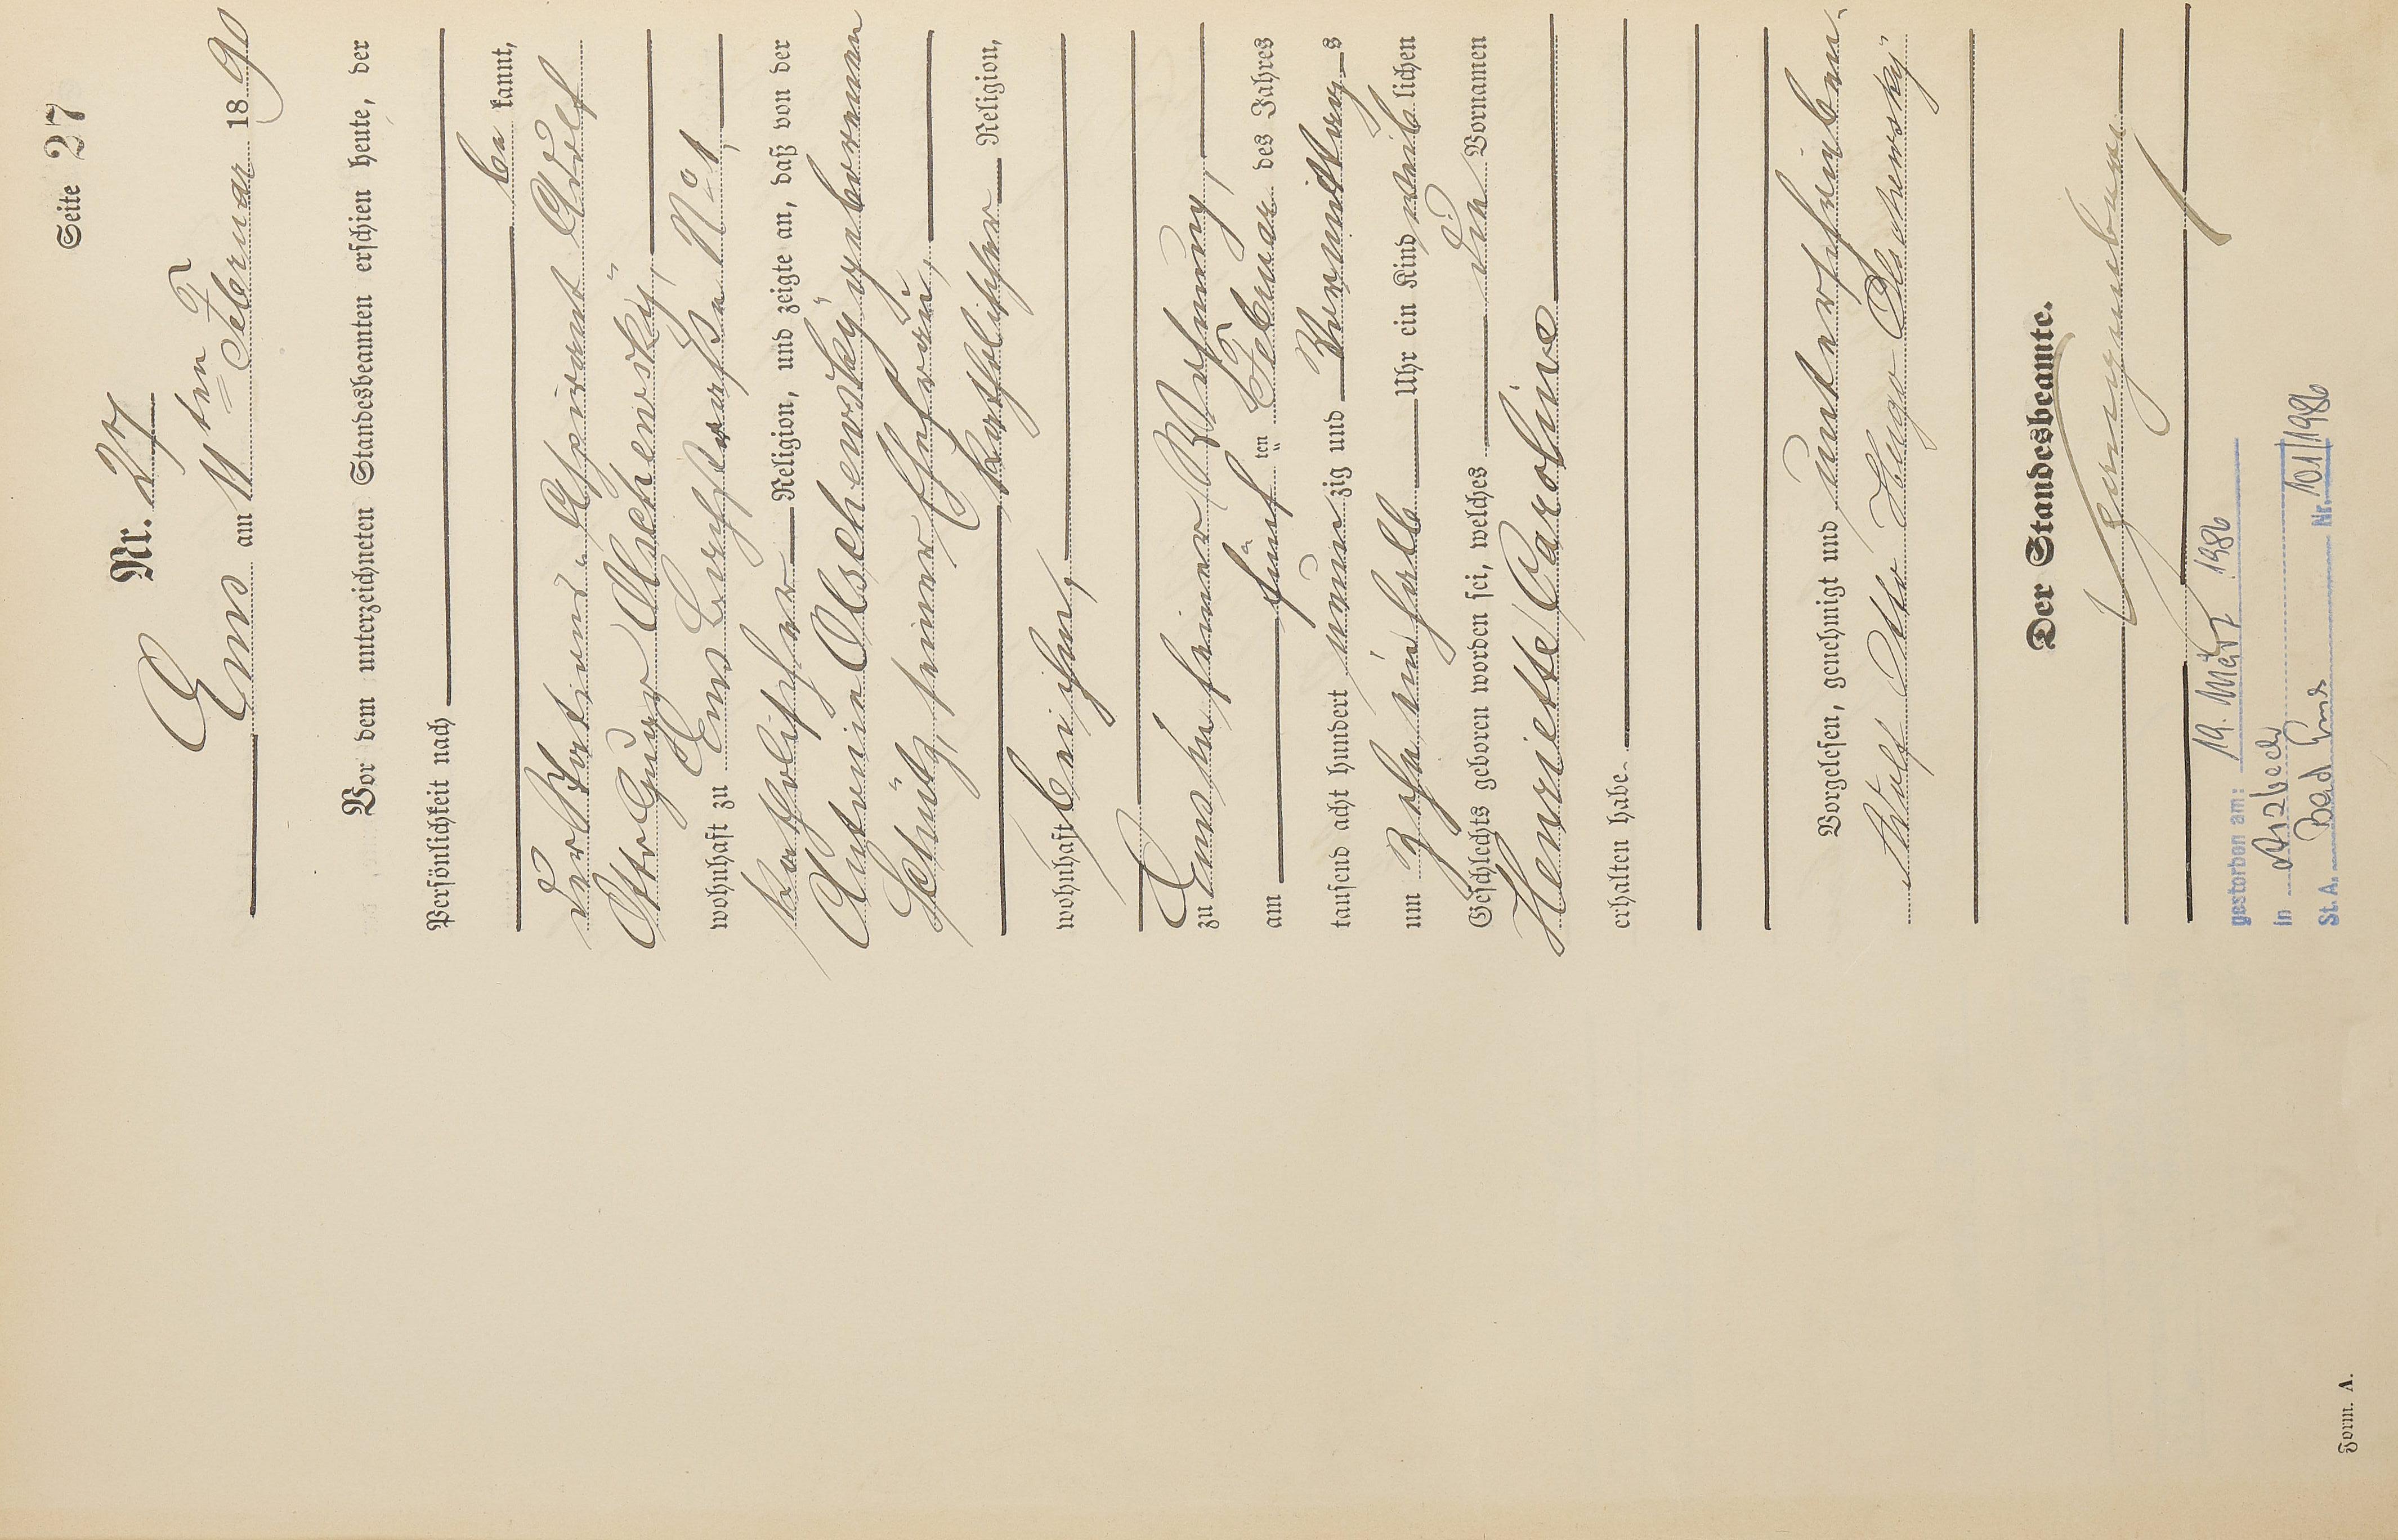 Seite 27
Nr. 27
Ems am 11ten Februar 1890
Vor dem unterzeichneten Standesbeamten erschien heute, der
Persönlichkeit nach
be kannt,
der Stations-Aspirant Adolf
Otto Hugo Olschewsky,
wohnhaft zu Ems Bachstraße No 1,
katholischer Religion, und zeigte an, daß von der
Antonie Olschewsky geborenen
Schultz, seiner Ehefrau,
katholischer Religion,
wohnhaft bei ihm,
zu Ems in seiner Wohnung,
am fünf ten Februar des Jahres
tausend acht hundert neun zig und Vormittags
um zehn ein halb Uhr ein Kind weiblichen
Geschlechts geboren worden sei, welches die Vornamen
Henriette Caroline
erhalten habe.
Vorgelesen, genehmigt und unterschrieben.
Adolf Otto Hugo Olschewsky
Der Standesbeamte.
gestorben am: 19. März 1986
in Arzbach
St. A. Bad Ems Nr. 101/1986
Form. A.